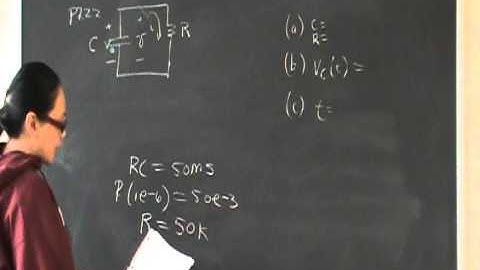 P7.22
+ +
C V₀ v i R
- -
(a) C=
R=
(b) Vc(t)=
(c) t=
RC = 50ms
R(1e-6)=50e-3
R = 50k